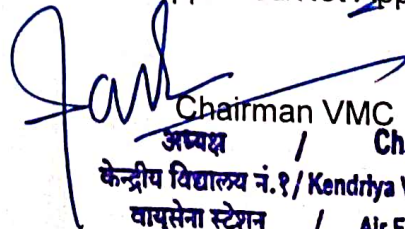 Chairman VMC
अध्यक्ष / Ch
केन्द्रीय विद्यालय नं.१/ Kendriya V
वायुसेना स्टेशन / Air F